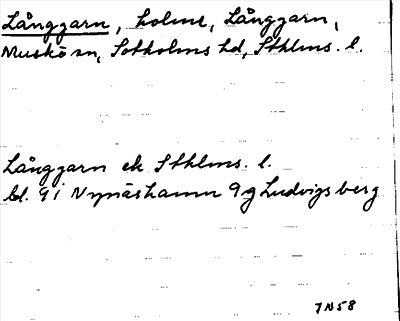 Långgarn, holme, Långgarn,
Muskö sn, Sotholms hd, Sthlms. l.
Långgarn ek Sthlms. l.
bl. 9i Nynäshamn 9g Ludvigsberg
7N58